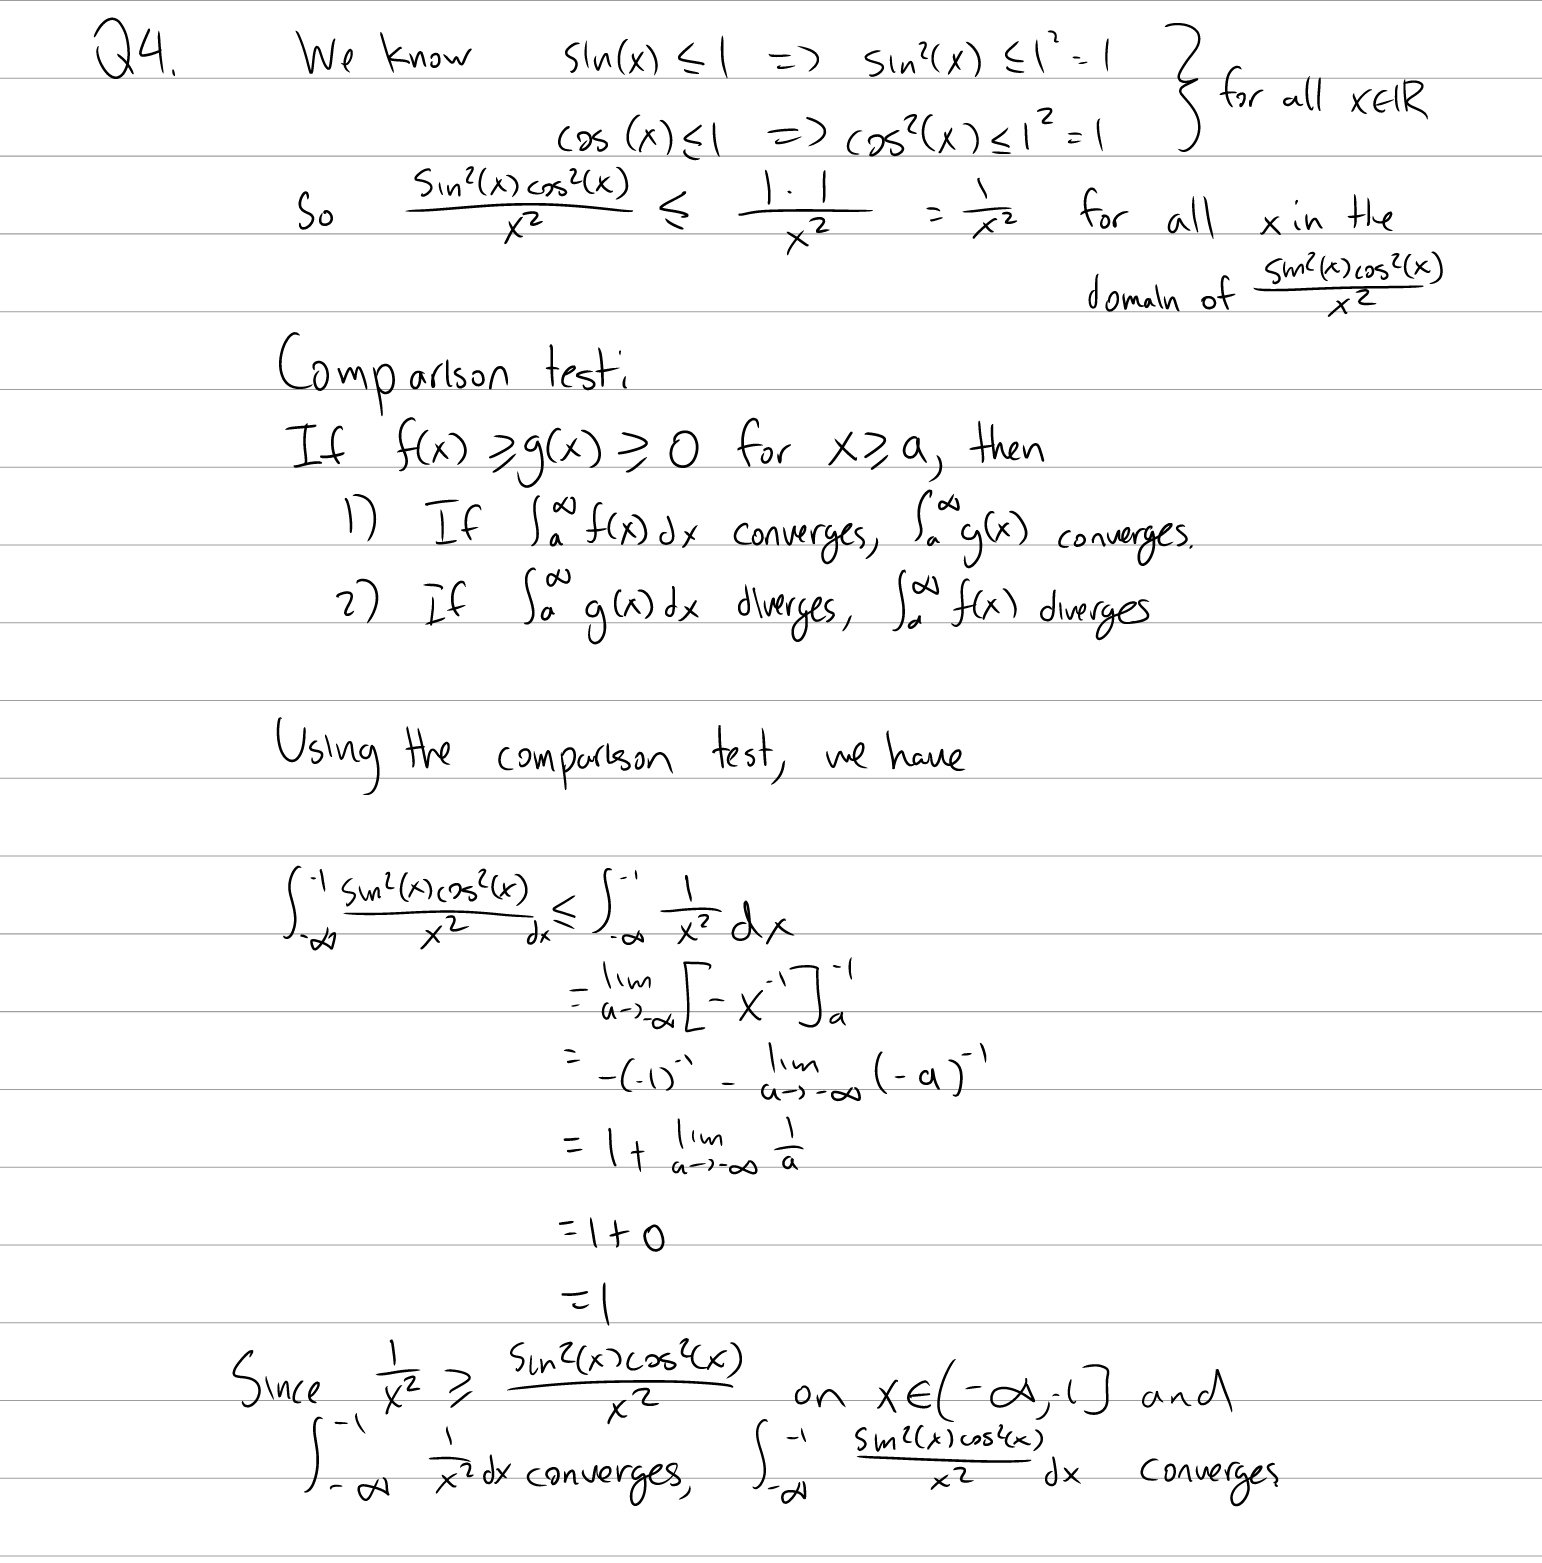 Q4. We know sin(x) ≤ 1 => sin²(x) ≤ 1² = 1
cos(x) ≤ 1 => cos²(x) ≤ 1² = 1 } for all x∈ℝ
So sin²(x)cos²(x)/x² ≤ 1·1/x² = 1/x² for all x in the
domain of sin²(x)cos²(x)/x²
Comparison test:
If f(x) ≥ g(x) ≥ 0 for x ≥ a, then
1) If ∫_a^∞ f(x)dx converges, ∫_a^∞ g(x) converges.
2) If ∫_a^∞ g(x)dx diverges, ∫_a^∞ f(x) diverges
Using the comparison test, we have
∫_{-∞}^{-1} sin²(x)cos²(x)/x² dx ≤ ∫_{-∞}^{-1} 1/x² dx
= lim_{a→-∞} [-x^{-1}]_a^{-1}
= -(-1)^{-1} - lim_{a→-∞} (-a)^{-1}
= 1 + lim_{a→-∞} 1/a
= 1 + 0
= 1
Since 1/x² ≥ sin²(x)cos²(x)/x² on x∈(-∞,-1] and
∫_{-∞}^{-1} 1/x² dx converges, ∫_{-∞}^{-1} sin²(x)cos²(x)/x² dx converges